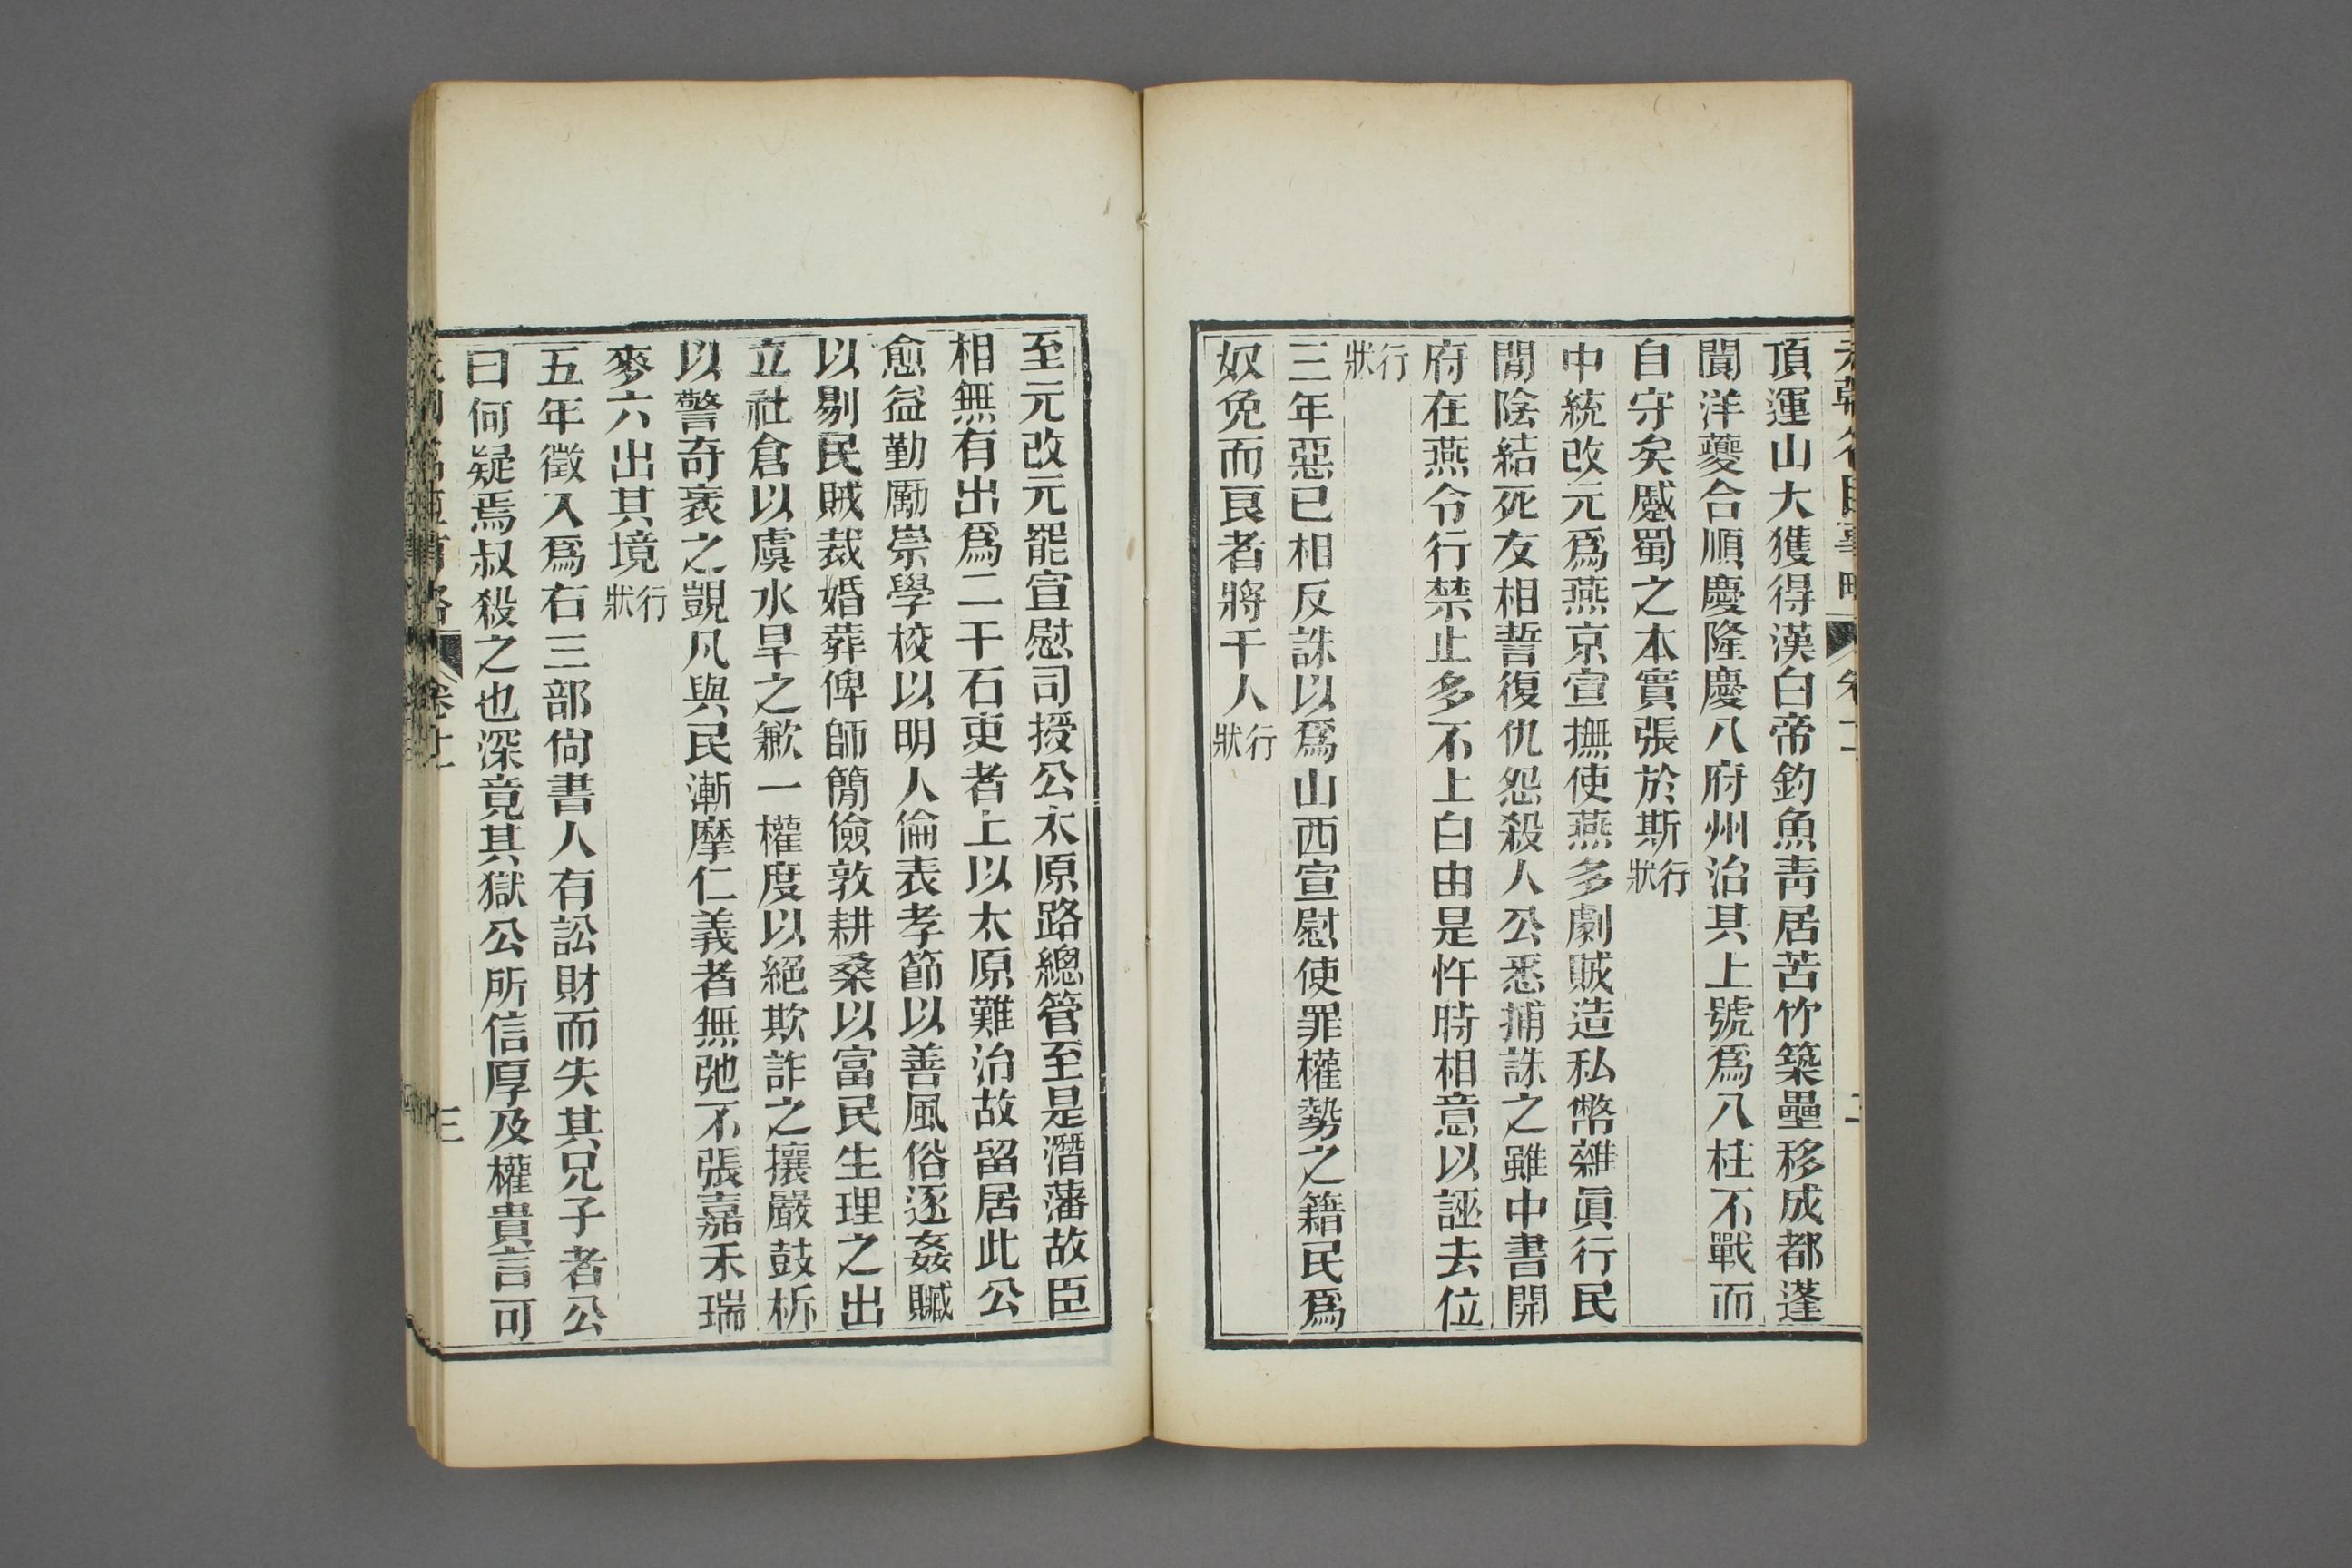 頂運山大獲得漢白帝釣魚靑居苦竹築壘移成都蓬
閬洋夔合順慶隆慶八府州治其上號爲八柱不戰而
自守矣蹙蜀之本實張於斯行狀
中統改元爲燕京宣撫使燕多劇賊造私幣雜眞行民
閒陰結死友相誓復仇怨殺人公悉捕誅之雖中書開
府在燕令行禁止多不上白由是忤時相意以誣去位
行狀
三年惡已相反誅以爲山西宣慰使罪權勢之籍民爲
奴免而良者將千人行狀
至元改元罷宣慰司授公太原路總管至是潛藩故臣
相無有出爲二千石吏者上以太原難治故留居此公
愈益勤勵崇學校以明人倫表孝節以善風俗逐姦贓
以剔民賊裁婚葬俾師簡儉敦耕桑以富民生理之出
立社倉以虞水旱之歉一權度以絕欺詐之攘嚴鼓柝
以警奇衺之覬凡與民漸摩仁義者無弛不張嘉禾瑞
麥六出其境行狀
五年徵入爲右三部尙書人有訟財而失其兄子者公
曰何疑焉叔殺之也深竟其獄公所信厚及權貴言可
卷十一
三